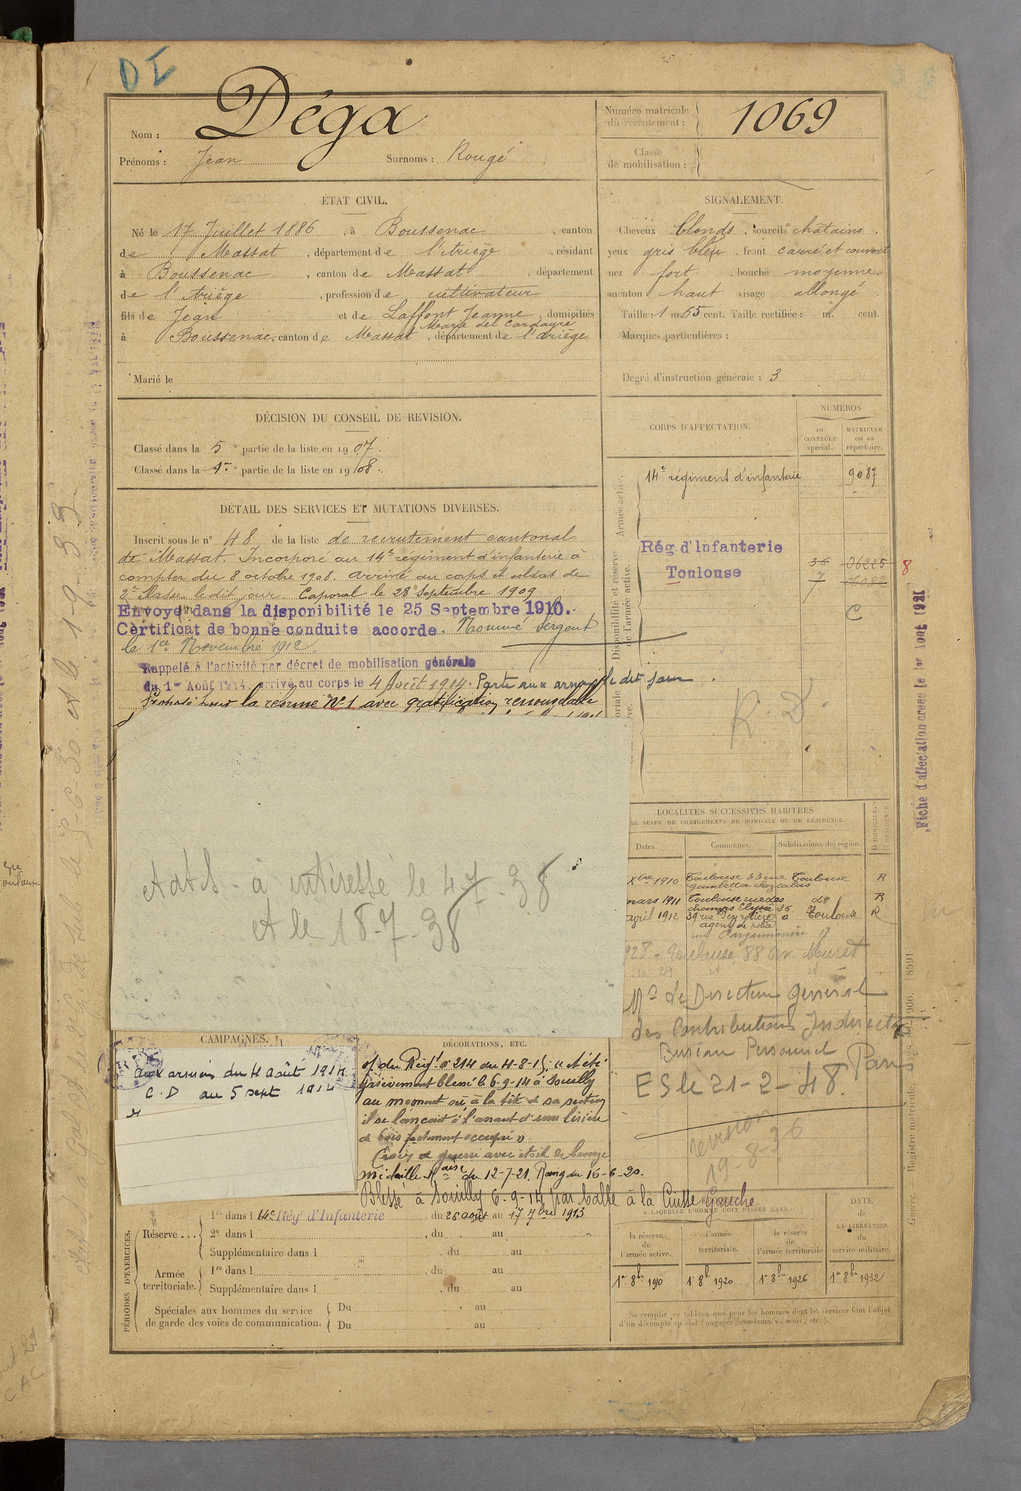 DI
Nom : Déga
Prénoms : Jean Surnoms : Rougé
Numéro matricule du recrutement : 1069
Classe de mobilisation :
ÉTAT CIVIL.
Né le 17 Juillet 1886, à Boussenac, canton
de Massat, département de l'Ariège, résidant
à Boussenac, canton de Massat, département
de l'Ariège, profession de cultivateur
fils de Jean et de Laffont Jeanne domiciliés
Marie del Cardayre
à Boussenac, canton de Massat, département de l'Ariège
Marié le
SIGNALEMENT.
Cheveux blonds, sourcils châtains
yeux gris bleu, front carré et couvert
nez fort, bouche moyenne
menton haut visage allongé
Taille : 1 m 65 cent. Taille rectifiée : m. cent.
Marques particulières :
Degré d'instruction générale : 3
DÉCISION DU CONSEIL DE REVISION.
Classé dans la 5e partie de la liste en 1907.
Classé dans la 1re partie de la liste en 1908.
CORPS D'AFFECTATION.
NUMÉROS
au CONTRÔLE spécial.
MATRICULE ou au répertoire.
Armée active.
14e régiment d'infanterie 9087
Disponibilité et réserve de l'armée active.
Rég. d'Infanterie
Toulouse
36
7
8
C
R. 2
DÉTAIL DES SERVICES ET MUTATIONS DIVERSES.
Inscrit sous le n° 48 de la liste de recrutement cantonal
de Massat. Incorporé au 14e régiment d'infanterie à
compter du 8 octobre 1908. Arrivé au corps et soldat de
2e classe le dit jour. Caporal le 28 Septembre 1909
Envoyé dans la disponibilité le 25 Septembre 1910.
Certificat de bonne conduite accordé. Nommé Sergent
le 1er Novembre 1912.
Rappelé à l'activité par décret de mobilisation générale
du 1er Août 1914, arrivé au corps le 4 Août 1914. Parti aux armées le dit jour.
Proposé pour la réforme N°1 avec gratification renouvelable
à intéressé le 4-7-38
et le 18-7-38
LOCALITÉS SUCCESSIVES HABITÉES
PAR SUITE DE CHANGEMENTS DE DOMICILE OU DE RÉSIDENCE.
Dates. Communes. Subdivisions de région.
Xbre 1910 Toulouse 33 rue Gambetta Toulouse R
mars 1911 Toulouse rue des champs Elysée 26 do R
avril 1912 39 rue à Toulouse R
agent de police
928 - Toulouse 88
Mr le Directeur Général
des Contributions Indirectes
Bureau Personnel Paris
ES le 21-2-48.
revision
19-8-36
CAMPAGNES.
aux armées du 4 août 1914
C.D au 5 sept 1914
DÉCORATIONS, ETC.
of du Régt n° 214 du 4-8-15 : "A été
grièvement blessé le 6-9-14 à Souilly
au moment où à la tête de sa section
il se lançait à l'assaut d'une lisière
de bois fortement occupée"
Croix de guerre avec étoile de bronze
Médaille Maire du 12-7-21. Rang du 16-6-20.
Blessé à Souilly 6-9-14 par balle à la Cuisse Gauche
PÉRIODES D'EXERCICES.
Réserve ... 1re dans l 14e Rég. d'Infanterie, du 26 août au 17 7bre 1913
2e dans l , du au
Supplémentaire dans l , du au
Armée territoriale. 1re dans l , du au
Supplémentaire dans l , du au
Spéciales aux hommes du service de garde des voies de communication. Du au
Du au
À LAQUELLE L'HOMME DOIT PASSER DANS :
la réserve de l'armée active.
l'armée territoriale.
la réserve de l'armée territoriale
DATE de LA LIBÉRATION du service militaire.
1er 8b 1910
1er 8b 1920
1er 8b 1926
1er 8b 1932
Ne remplir ce tableau que pour les hommes dont les services font l'objet
d'un décompte spécial (engagés, omis, etc.).
Fiche d'affectation créée le 1er Août 1921
Registre matricule.